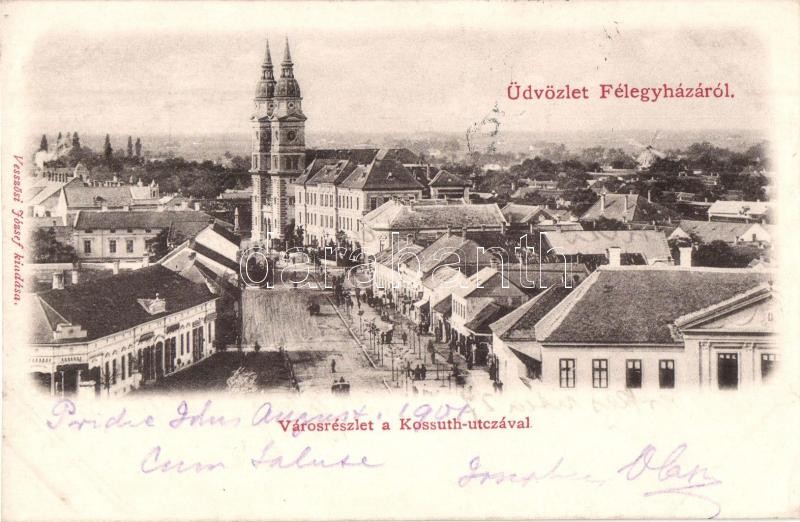 Üdvözlet Félegyházáról.
Vesszősi József kiadása.
darabanth
Városrészlet a Kossuth-utczával.
Pridie Idus Augusti 1901
Cum Salute